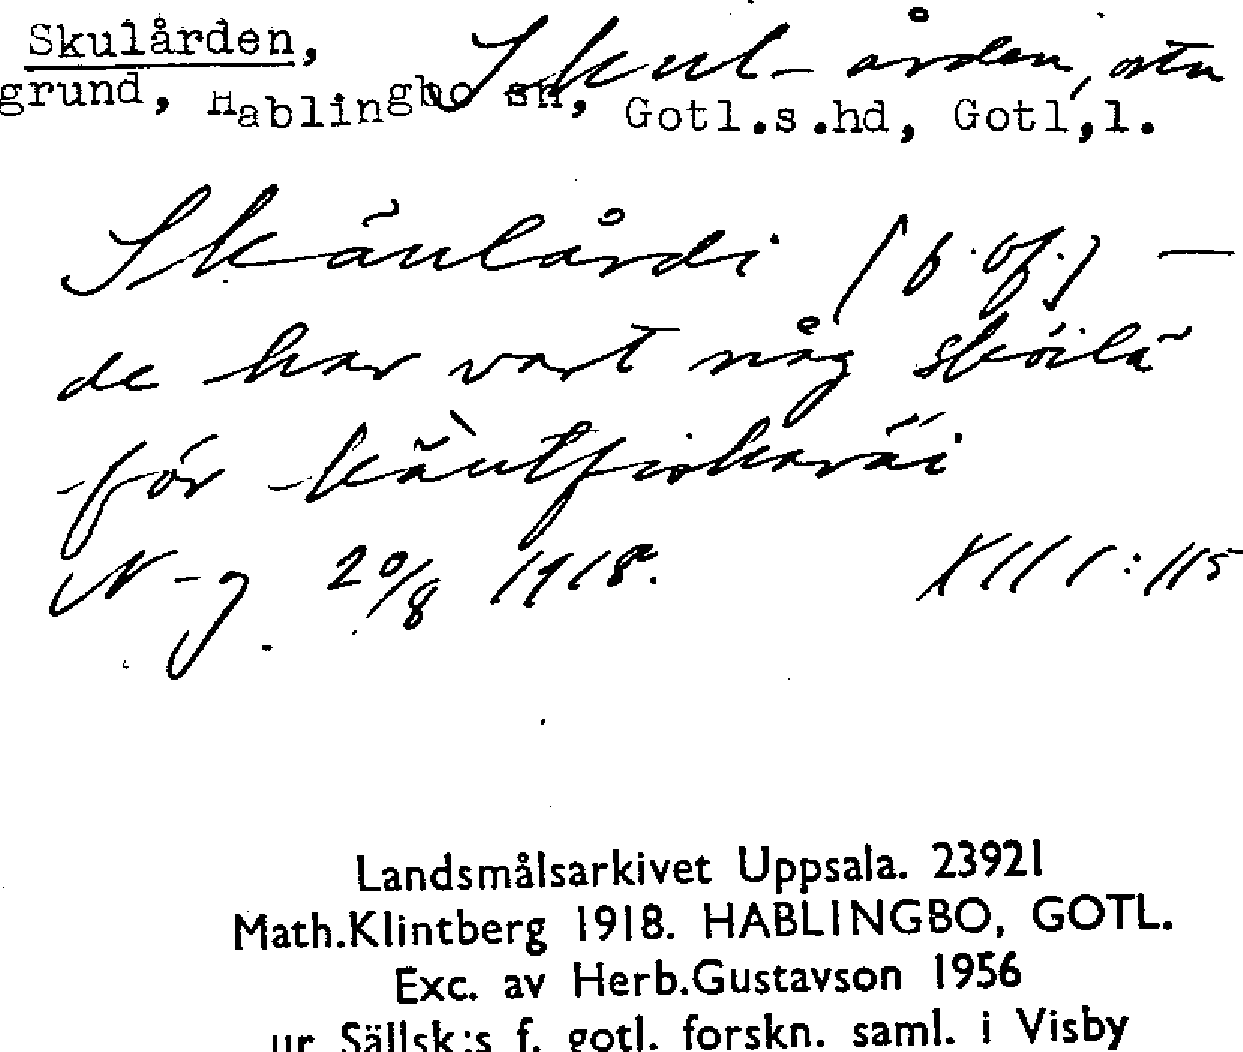 Skulården, Skul-ården, ortn
grund, Hablingbo sn, Gotl.s.hd, Gotl,l.
Skäulårdi (p. of.) —
de har vart någ sköilä
för käutfiskaräi
N-g 20/8 1918. XIII:115
Landsmålsarkivet Uppsala. 23921
Math.Klintberg 1918. HABLINGBO, GOTL.
Exc. av Herb.Gustavson 1956
ur Sällsk:s f. gotl. forskn. saml. i Visby